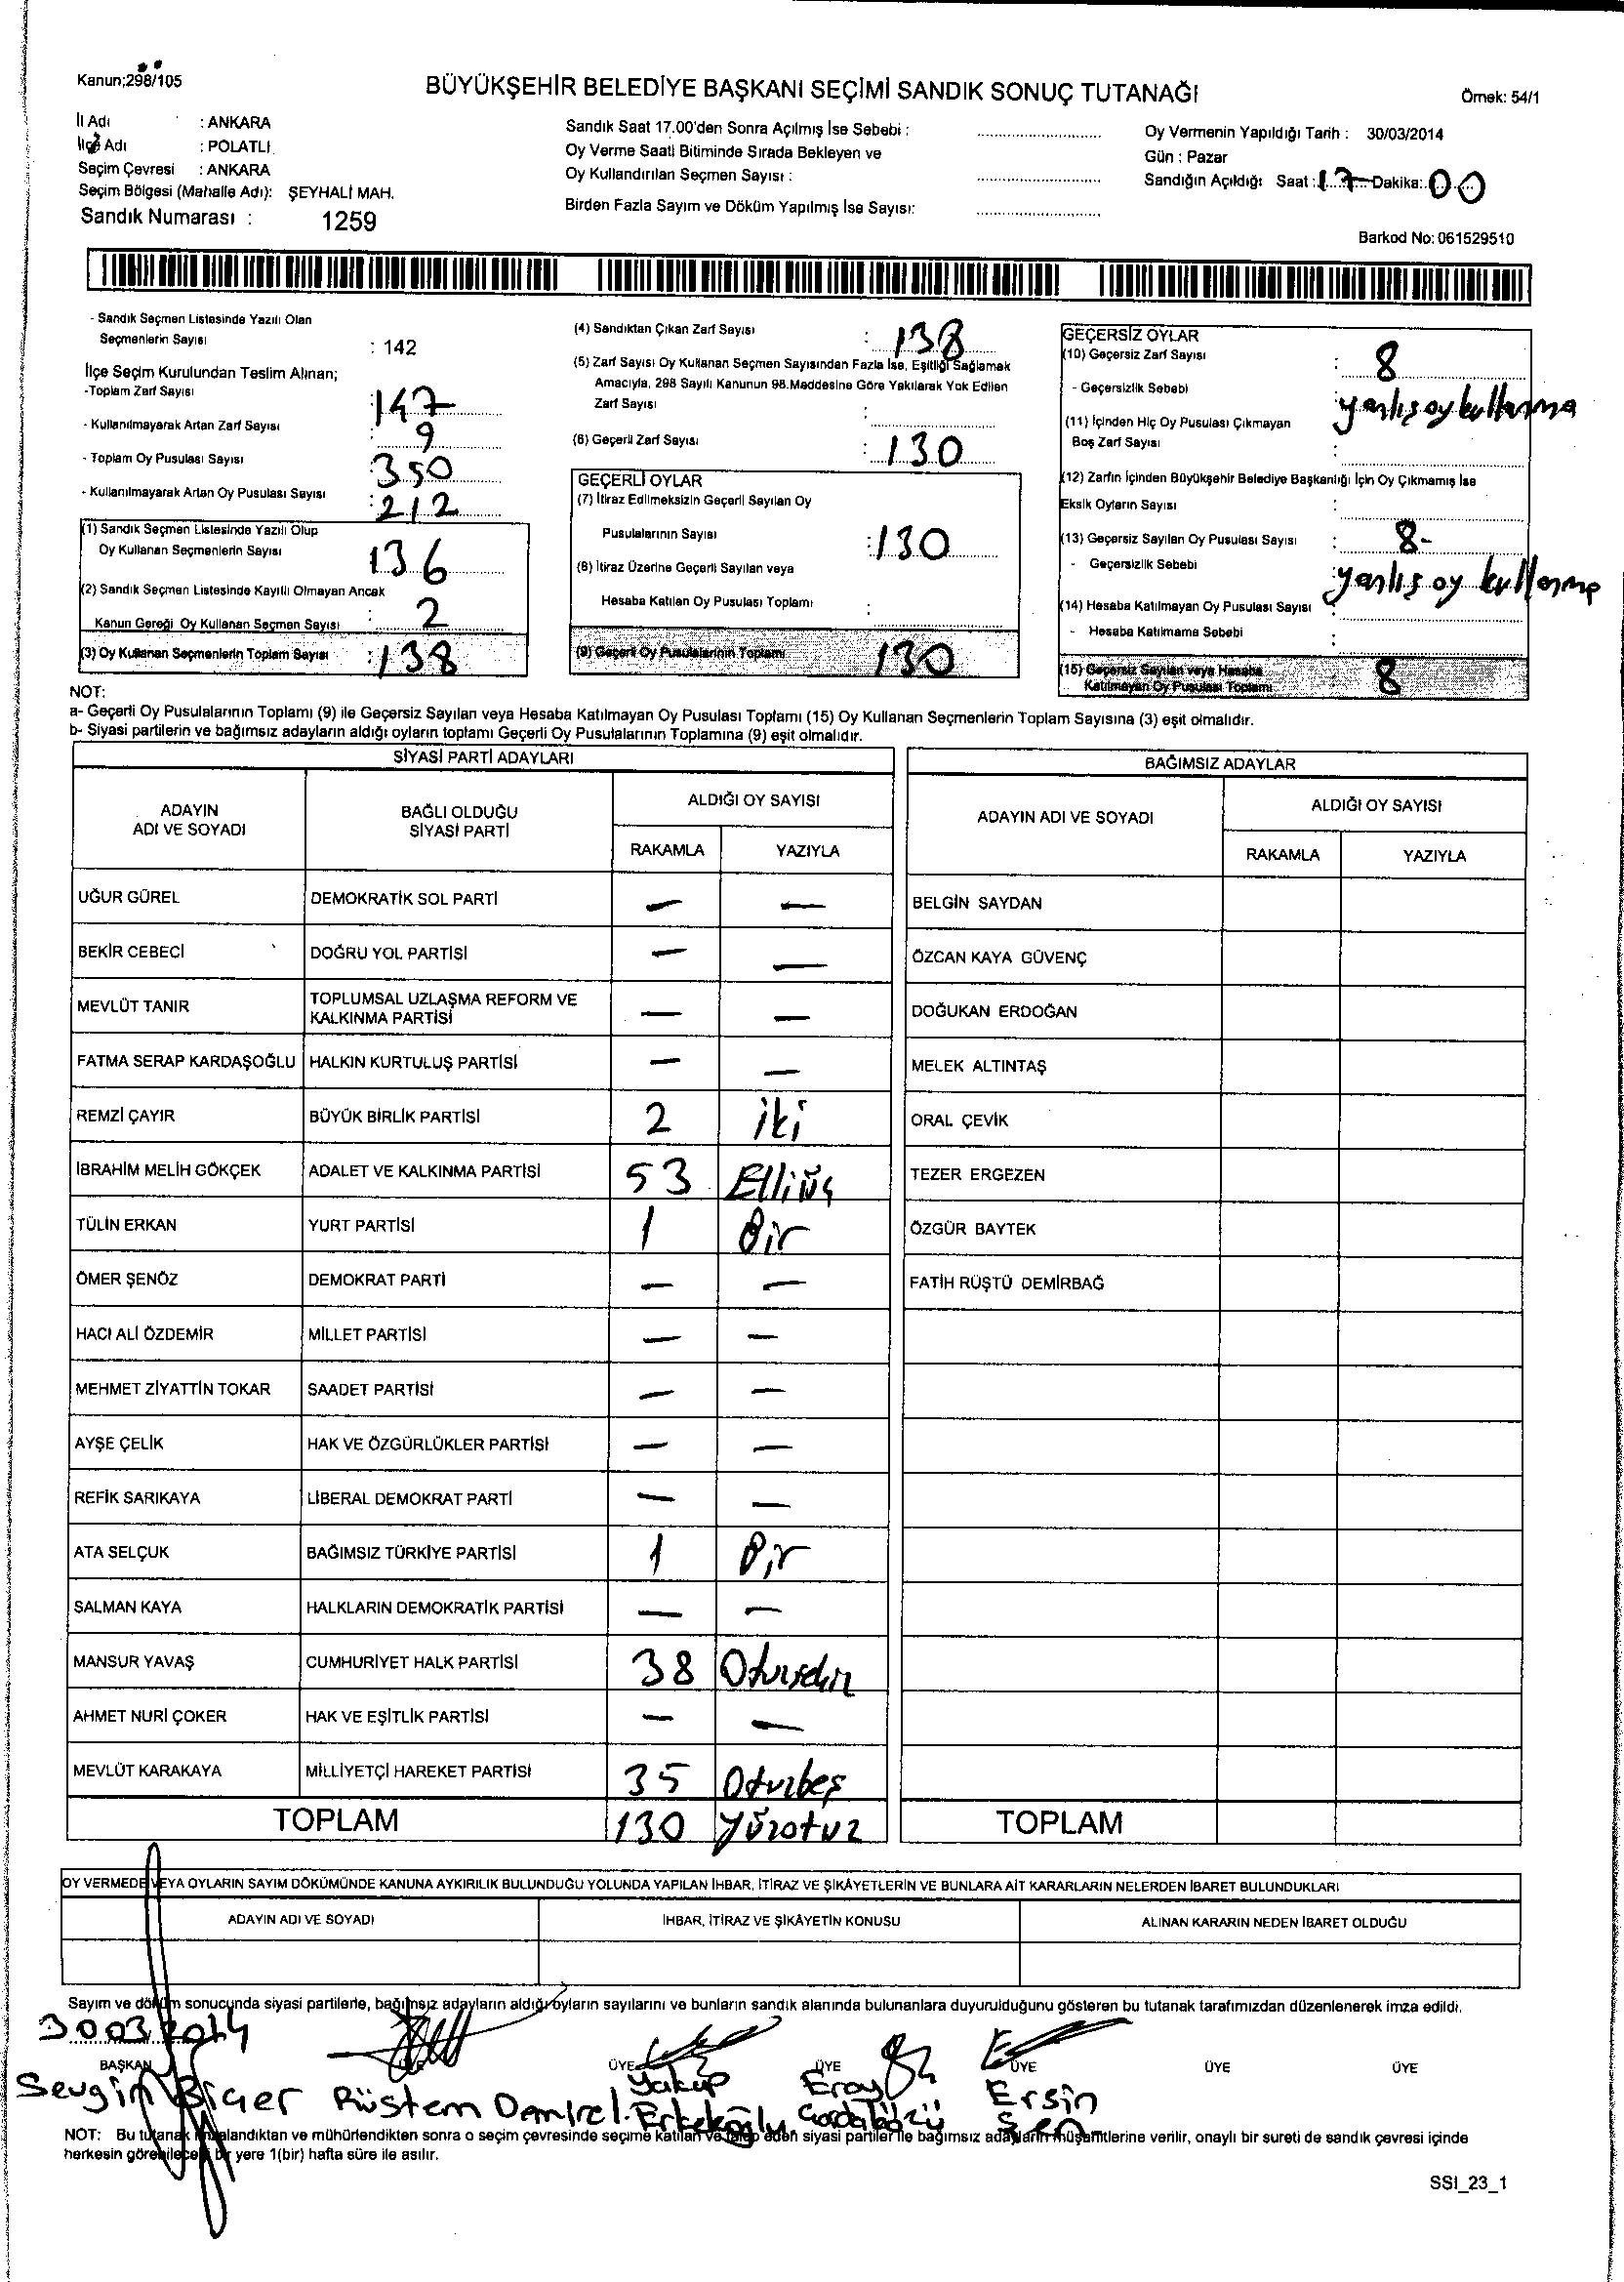 Kanun;298/105
BÜYÜKŞEHİR BELEDİYE BAŞKANI SEÇİMİ SANDIK SONUÇ TUTANAĞI
Örnek: 54/1
İl Adı : ANKARA
İlçe Adı : POLATLI
Seçim Çevresi : ANKARA
Seçim Bölgesi (Mahalle Adı): ŞEYHALİ MAH.
Sandık Numarası : 1259
Sandık Saat 17.00'den Sonra Açılmış İse Sebebi :
Oy Verme Saati Bitiminde Sırada Bekleyen ve
Oy Kullandırılan Seçmen Sayısı :
Birden Fazla Sayım ve Döküm Yapılmış İse Sayısı:
Oy Vermenin Yapıldığı Tarih : 30/03/2014
Gün : Pazar
Sandığın Açıldığı Saat : 17 Dakika: 00
Barkod No: 061529510
- Sandık Seçmen Listesinde Yazılı Olan
Seçmenlerin Sayısı : 142
İlçe Seçim Kurulundan Teslim Alınan;
-Toplam Zarf Sayısı : 147
- Kullanılmayarak Artan Zarf Sayısı : 9
- Toplam Oy Pusulası Sayısı : 350
- Kullanılmayarak Artan Oy Pusulası Sayısı : 212
(1) Sandık Seçmen Listesinde Yazılı Olup
Oy Kullanan Seçmenlerin Sayısı : 136
(2) Sandık Seçmen Listesinde Kayıtlı Olmayan Ancak
Kanun Gereği Oy Kullanan Seçmen Sayısı : 2
(3) Oy Kullanan Seçmenlerin Toplam Sayısı : 138
(4) Sandıktan Çıkan Zarf Sayısı : 138
(5) Zarf Sayısı Oy Kullanan Seçmen Sayısından Fazla İse, Eşitliği Sağlamak
Amacıyla, 298 Sayılı Kanunun 98.Maddesine Göre Yakılarak Yok Edilen
Zarf Sayısı :
(6) Geçerli Zarf Sayısı : 130
GEÇERLİ OYLAR
(7) İtiraz Edilmeksizin Geçerli Sayılan Oy
Pusulalarının Sayısı : 130
(8) İtiraz Üzerine Geçerli Sayılan veya
Hesaba Katılan Oy Pusulası Toplamı :
(9) Geçerli Oy Pusulalarının Toplamı 130
GEÇERSİZ OYLAR
(10) Geçersiz Zarf Sayısı : 8
- Geçersizlik Sebebi : yanlış oy kullanma
(11) İçinden Hiç Oy Pusulası Çıkmayan
Boş Zarf Sayısı :
(12) Zarfın İçinden Büyükşehir Belediye Başkanlığı İçin Oy Çıkmamış İse
Eksik Oyların Sayısı :
(13) Geçersiz Sayılan Oy Pusulası Sayısı : 8-
- Geçersizlik Sebebi : yanlış oy kullanma
(14) Hesaba Katılmayan Oy Pusulası Sayısı :
- Hesaba Katılmama Sebebi :
(15) Geçersiz Sayılan veya Hesaba
Katılmayan Oy Pusulası Toplamı 8
NOT:
a- Geçerli Oy Pusulalarının Toplamı (9) ile Geçersiz Sayılan veya Hesaba Katılmayan Oy Pusulası Toplamı (15) Oy Kullanan Seçmenlerin Toplam Sayısına (3) eşit olmalıdır.
b- Siyasi partilerin ve bağımsız adayların aldığı oyların toplamı Geçerli Oy Pusulalarının Toplamına (9) eşit olmalıdır.
SİYASİ PARTİ ADAYLARI
ADAYIN ADI VE SOYADI BAĞLI OLDUĞU SİYASİ PARTİ ALDIĞI OY SAYISI
RAKAMLA YAZIYLA
UĞUR GÜREL DEMOKRATİK SOL PARTİ — —
BEKİR CEBECİ DOĞRU YOL PARTİSİ — —
MEVLÜT TANIR TOPLUMSAL UZLAŞMA REFORM VE KALKINMA PARTİSİ — —
FATMA SERAP KARDAŞOĞLU HALKIN KURTULUŞ PARTİSİ — —
REMZİ ÇAYIR BÜYÜK BİRLİK PARTİSİ 2 iki
İBRAHİM MELİH GÖKÇEK ADALET VE KALKINMA PARTİSİ 53 Elliüç
TÜLİN ERKAN YURT PARTİSİ 1 Bir
ÖMER ŞENÖZ DEMOKRAT PARTİ — —
HACI ALİ ÖZDEMİR MİLLET PARTİSİ — —
MEHMET ZİYATTİN TOKAR SAADET PARTİSİ — —
AYŞE ÇELİK HAK VE ÖZGÜRLÜKLER PARTİSİ — —
REFİK SARIKAYA LİBERAL DEMOKRAT PARTİ — —
ATA SELÇUK BAĞIMSIZ TÜRKİYE PARTİSİ 1 Bir
SALMAN KAYA HALKLARIN DEMOKRATİK PARTİSİ — —
MANSUR YAVAŞ CUMHURİYET HALK PARTİSİ 38
AHMET NURİ ÇOKER HAK VE EŞİTLİK PARTİSİ — —
MEVLÜT KARAKAYA MİLLİYETÇİ HAREKET PARTİSİ 35 Oturbeş
TOPLAM 130 Yüzotuz
BAĞIMSIZ ADAYLAR
ADAYIN ADI VE SOYADI ALDIĞI OY SAYISI
RAKAMLA YAZIYLA
BELGİN SAYDAN
ÖZCAN KAYA GÜVENÇ
DOĞUKAN ERDOĞAN
MELEK ALTINTAŞ
ORAL ÇEVİK
TEZER ERGEZEN
ÖZGÜR BAYTEK
FATİH RÜŞTÜ DEMİRBAĞ
TOPLAM
OY VERMEDE VEYA OYLARIN SAYIM DÖKÜMÜNDE KANUNA AYKIRILIK BULUNDUĞU YOLUNDA YAPILAN İHBAR, İTİRAZ VE ŞİKÂYETLERİN VE BUNLARA AİT KARARLARIN NELERDEN İBARET BULUNDUKLARI
ADAYIN ADI VE SOYADI İHBAR, İTİRAZ VE ŞİKÂYETİN KONUSU ALINAN KARARIN NEDEN İBARET OLDUĞU
Sayım ve döküm sonucunda siyasi partilerle, bağımsız adayların aldığı oyların sayılarını ve bunların sandık alanında bulunanlara duyurulduğunu gösteren bu tutanak tarafımızdan düzenlenerek imza edildi.
30 03 2014
BAŞKAN ÜYE ÜYE ÜYE ÜYE ÜYE
Sevgin Biçer Rüstem Demirel Yakup Erkekoğlu Eray Ersin Şen
NOT: Bu tutanak imzalandıktan ve mühürlendikten sonra o seçim çevresinde seçime katılan ve talep eden siyasi partiler ile bağımsız adayların müşahitlerine verilir, onaylı bir sureti de sandık çevresi içinde
herkesin görebileceği bir yere 1(bir) hafta süre ile asılır.
SSI_23_1